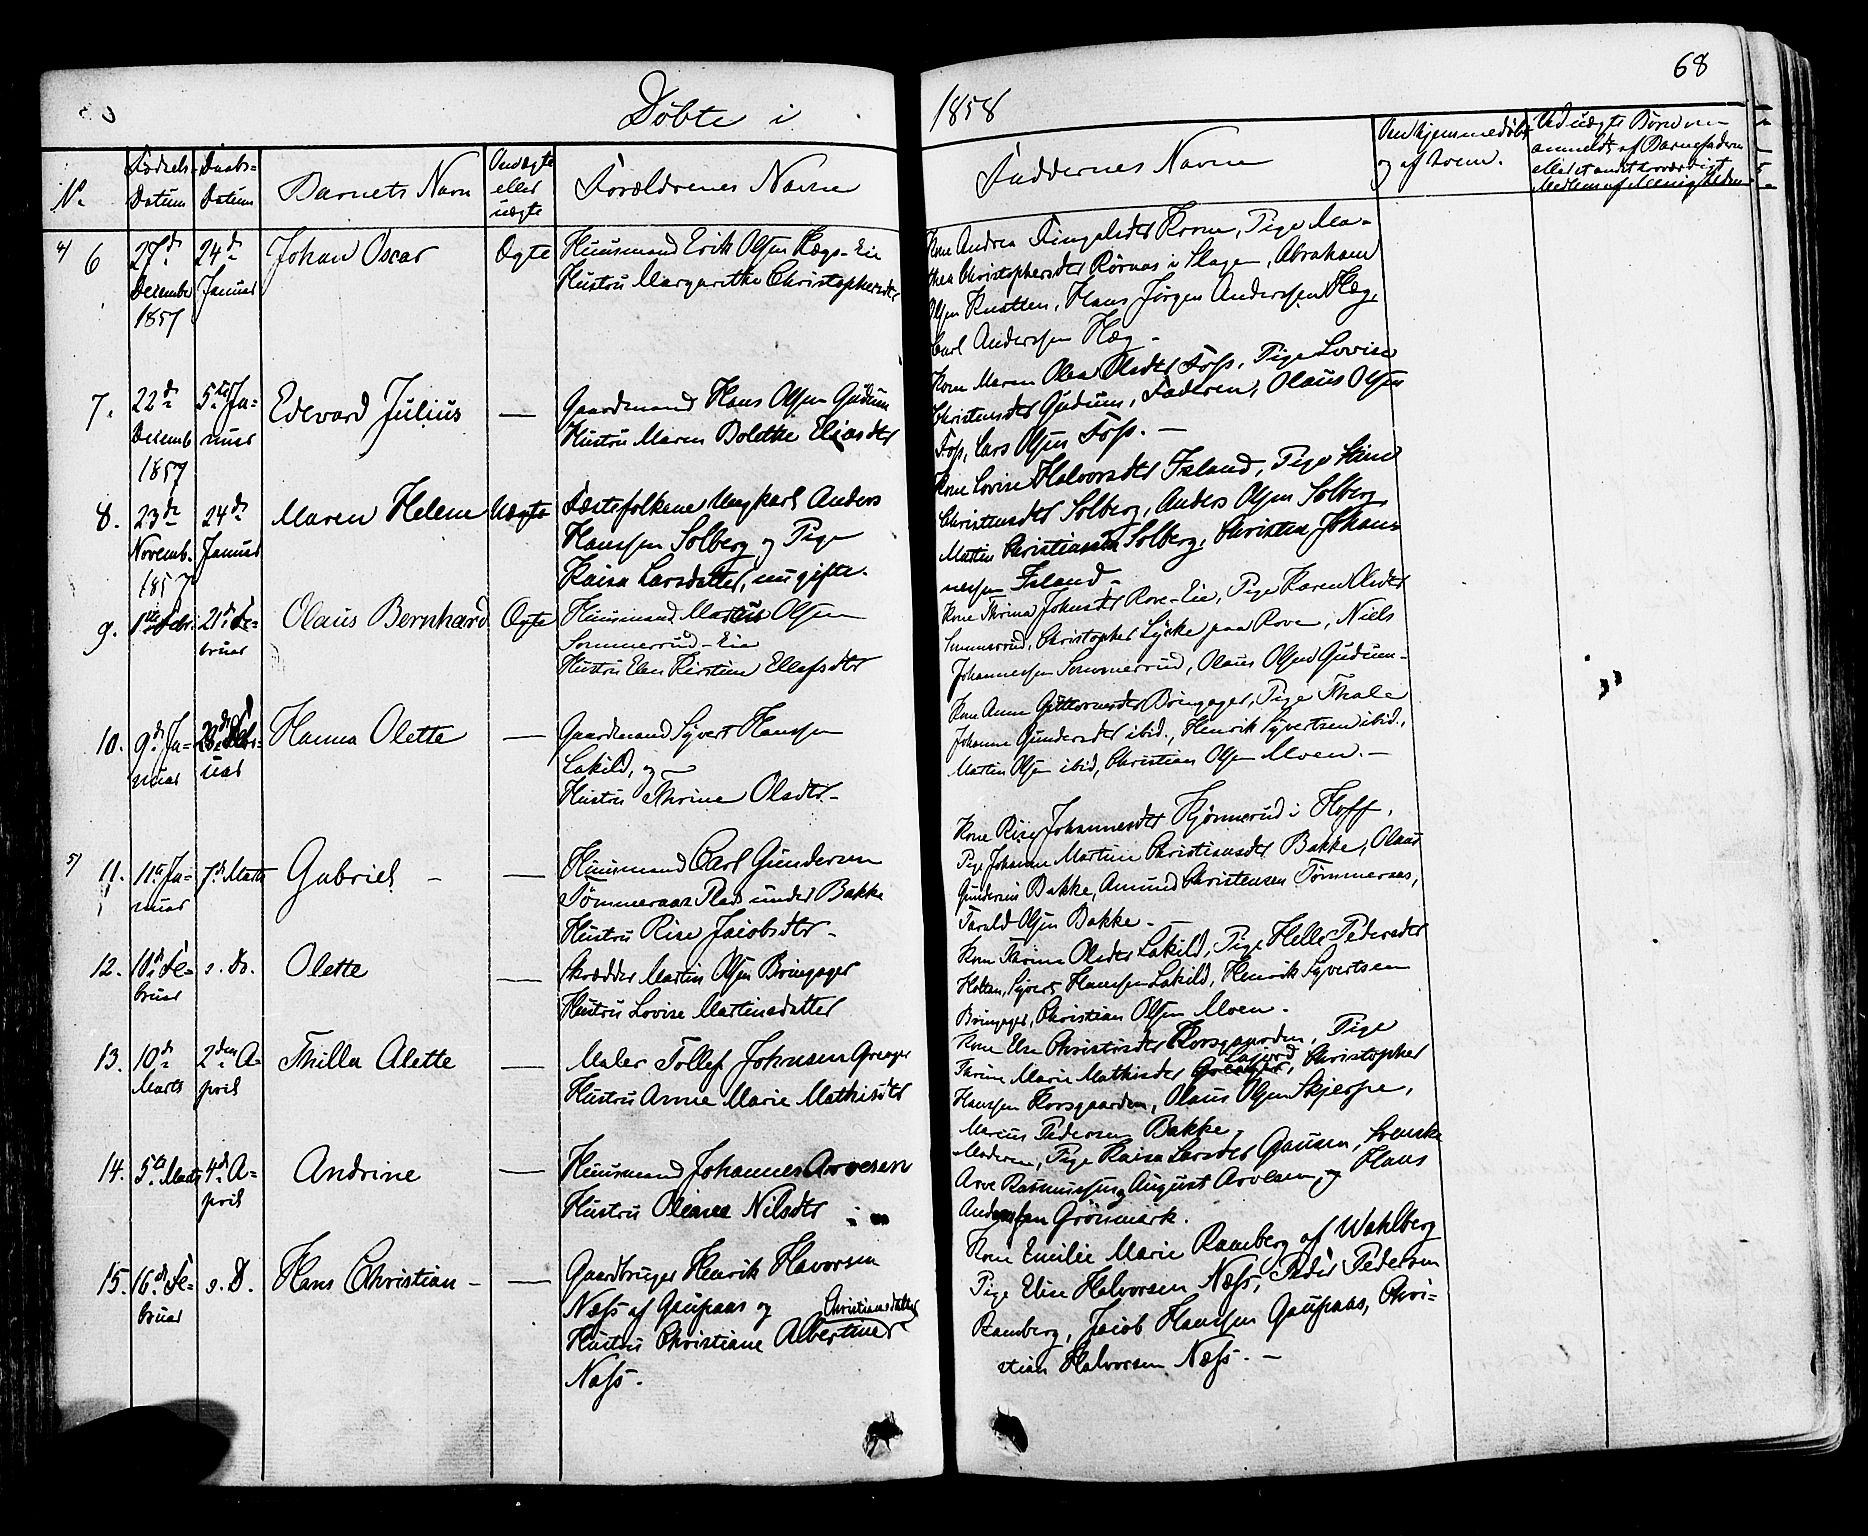 68
Døbte i 1858
No
Fødsels-
Datum
Daabs-
Datum
Barnets Navn
Om ægte
eller
uægte
Forældrenes Navne
Faddernes Navne
Om hjemmedøbt
og af hvem.
Ved uægte Børn om
anmeldt af Barnefaderen
eller et andet troværdigt
Medlem af Menigheden
4) 6
27de
Decembr
1857
24de
Januar
Johan Oscar
Ægte
Huusmand Erik Olsen Hægs-Eie
Hustru Margarethe Christophersdtr
Kone Andrea Fingalsdtr Krone, Pige Ma-
thea Christophersdtr Rørnas i Slagen, Abraham
Olsen Knatten, Hans Jørgen Anderssen Hæg
Carl Anderssen Hæg -
7.
22de
Decemb
1857
5te Ja-
nuar
Edevard Julius
—
Gaardmand Hans Olsen Gudum
Hustru Maren Bolethe Eliasdtr
Kone Maren Olea Olsdtr Foss, Pige Lovise
Christensdtr Gudum, Faderen, Olaus Olsen
Foss, Lars Olsen Foss. —
8.
23de
Novemb.
1857
24de
Januar
Maren Helene
Uægte
Fæstefolkene Ungkarl Anders
Hanssen Solberg og Pige
Kaisa Larsdatter, nu gifte.
Kone Lovise Halvorsdtr Island, Pige Stine
Christensdtr Solberg, Anders Olsen Solberg,
Martin Christiansen Solberg, Christen Johan-
nessen Island
9.
1ste Febr.
21de Fe-
bruar
Olaus Bernhard
Ægte
Huusmand Martin Olsen
Sommerrud-Eie
Hustru Elen Kirstine Ellefsdtr
Kone Thrina Johnsdtr Rove-Eie, Pige Karen Olsdtr
Sommerrud, Christopher Lycke paa Rove, Niels
Johannessen Sommerrud, Olaus Olsen Gudum -
10.
9de Ja-
nuar
28de Febr-
uar
Hanna Olette
—
Gaardmand Syvert Hanssen
Lakild, og
Hustru Thrine Olsdtr -
Kone Anne Guttormsdtr Bringager, Pige Thale
Johanne Gundersdtr ibid., Henrik Syvertsen ibid.,
Martin Olsen ibid, Christian Olsen Moen. —
5) 11.
11te Ja-
nuar
7de Marts
Gabriel -
—
Huusmand Carl Gundersen
Tømmeraas Plads under Bakke
Hustru Rise Jacobsdtr -
Kone Rise Johannesdtr Kjønnerud i Hoff,
Pige Johanne Martine Christiansdtr Bakke, Olaus
Gundersen Bakke, Amund Christensen Tømmeraas,
Tarald Olsen Bakke -
12.
10de Fe-
bruar
s. Do.
Olette
—
Skrædder Martin Olsen Bringager
Hustru Lovise Martinsdatter
Kone Thrine Olsdtr Lakild, Pige Helle Pedersdtr
Holtan, Syvert Hanssen Lakild, Henrik Syvertsen
Bringager, Christian Olsen Moen -
13.
10de
Marts
2den A-
pril
Thilla Alette
—
Maler Tollef Johnsen Greager
Hustru Anne Marie Mathisdtr
Kone Else Christisdtr Korsgaarden, Pige
Thrine Marie Mathisdtr Greager, Christopher
Hanssen Korsgaarden, Olaus Olsen Skjerpe,
Marius Pedersen Bakke -
14.
5te Marts
4de A-
pril
Andrine
—
Huusmand Johannes Arvesen
Hustru Oleana Nilsdtr
Moderen, Pige Kaisa Larsdtr Gausen, Svenske
Arve Rasmussen, August Arvesen, og Hans
Anderssen Grønmark.
15.
16de Fe-
bruar
s. D.
Hans Christian -
—
Gaardbruger Henrik Havorsen
Næss af Gaupaas og
Hustru Christiane Albertine Christiansdatter
Næss.
Kone Emilie Marie Ramberg af Wahlberg
Pige Elise Halvorsen Næss, Peder Pedersen
Ramberg, Jacob Hanssen Gaupaas, Chri-
stian Halvorsen Næss. —